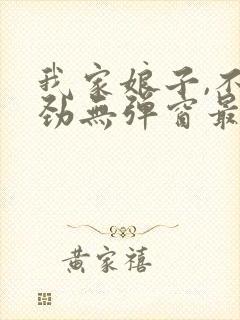 我家娘子,不
劲无弹窗最
黄家禧